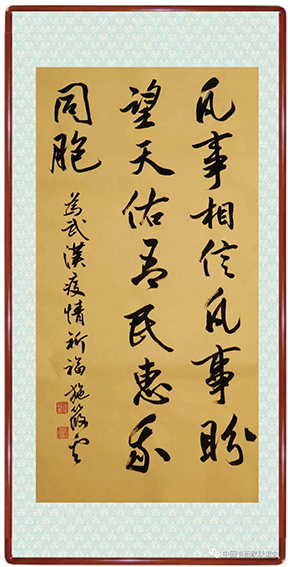 凡事相信凡事盼
望天佑吾民惠我
同胞
為武漢疫情祈福 施筱云